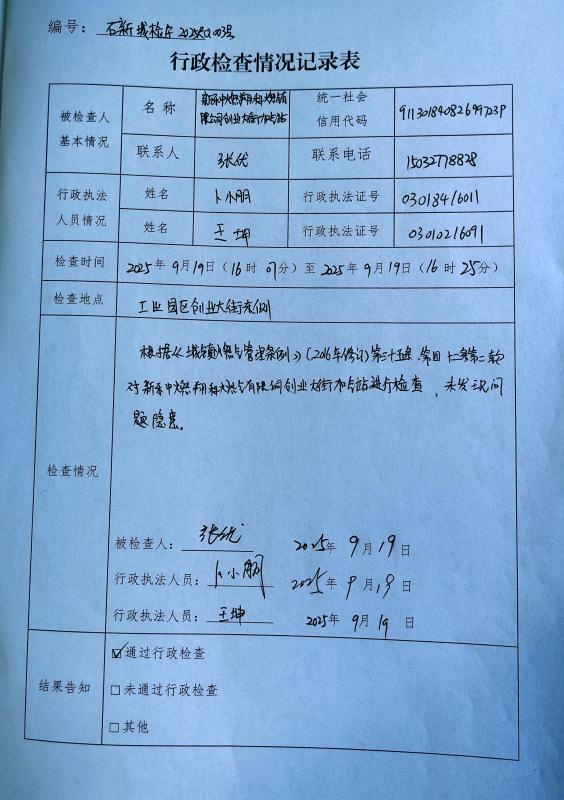 编号：石新城检字2025第003号
行政检查情况记录表
被检查人基本情况
名称
新乐中燃翔科燃气有限公司创业大街加气站
统一社会信用代码
联系人
张优
联系电话
15032778828
行政执法人员情况
姓名
卜小朋
行政执法证号
03018416011
姓名
王坤
行政执法证号
03010216091
检查时间
2025年9月19日（16时07分）至2025年9月19日（16时25分）
检查地点
工业园区创业大街东侧
检查情况
根据《城镇燃气管理条例》(2016年修订)第三十五条、第四十一条第二款
对新乐中燃翔科燃气有限公司创业大街加气站进行检查，未发现问
题隐患。
被检查人：张优 2025年9月19日
行政执法人员：卜小朋 2025年9月19日
行政执法人员：王坤 2025年9月19日
结果告知
☑通过行政检查
□未通过行政检查
□其他